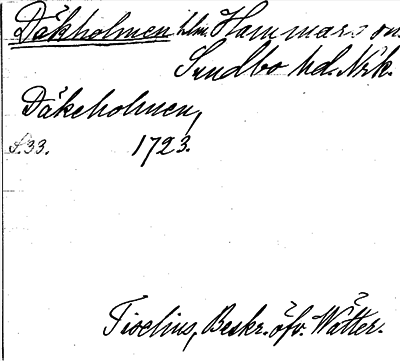 Däkholmen hlm. Hammars sn.
Sundbo hd. Nrk.
Däkeholmen,
s.33. 1723.
Tiselius, Beskr. öfv. Wätter.